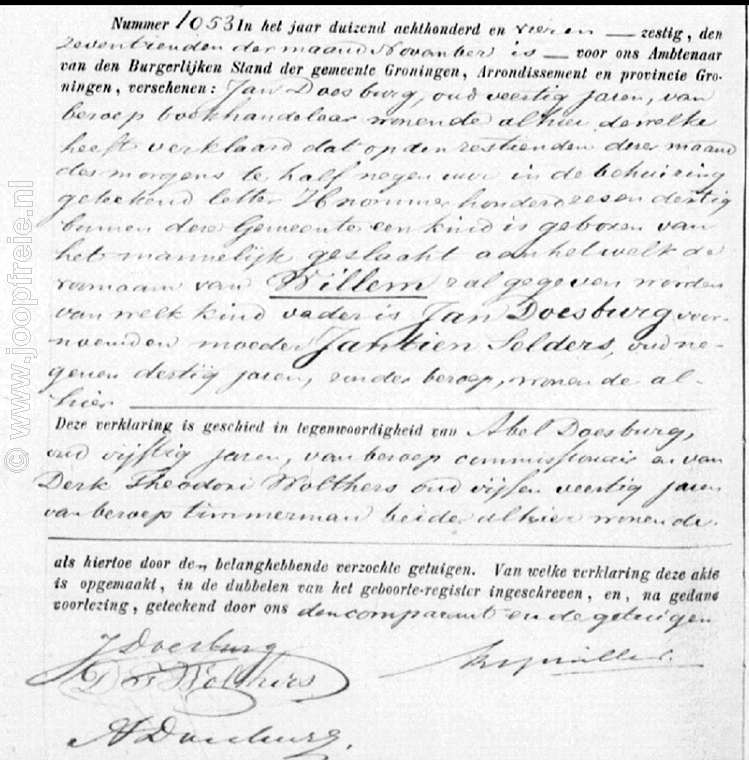 Nummer 1053 In het jaar duizend achthonderd en vier en — zestig, den
zeventienden der maand November is — voor ons Ambtenaar
van den Burgerlijken Stand der gemeente Groningen, Arrondissement en provincie Gro-
ningen, verschenen: Jan Doesburg, oud veertig jaren, van
beroep boekhandelaar wonende alhier dewelke
heeft verklaard dat op den zestienden dezer maand
des morgens te half negen uur in de behuizing
geteekend letter H nommer honderd zes en dertig
binnen deze Gemeente een kind is geboren van
het mannelijk geslacht aan hetwelk de
voornaam van Willem zal gegeven worden
van welk kind vader is Jan Doesburg voor-
noemd en moeder Jantien Selders, oud ne-
gen en dertig jaren, zonder beroep, wonende al-
hier
Deze verklaring is geschied in tegenwoordigheid van Abel Doesburg,
oud vijftig jaren, van beroep commissionair en van
Derk Theodori Wolthers oud vijf en veertig jaren
van beroep timmerman beide alhier wonende.
als hiertoe door de belanghebbende verzochte getuigen. Van welke verklaring deze akte
is opgemaakt, in de dubbelen van het geboorte-register ingeschreven, en, na gedane
voorlezing, geteekend door ons den comparant en de getuigen
J Doesburg
D T Wolthers
A Doesburg.
© www.joopfreie.nl